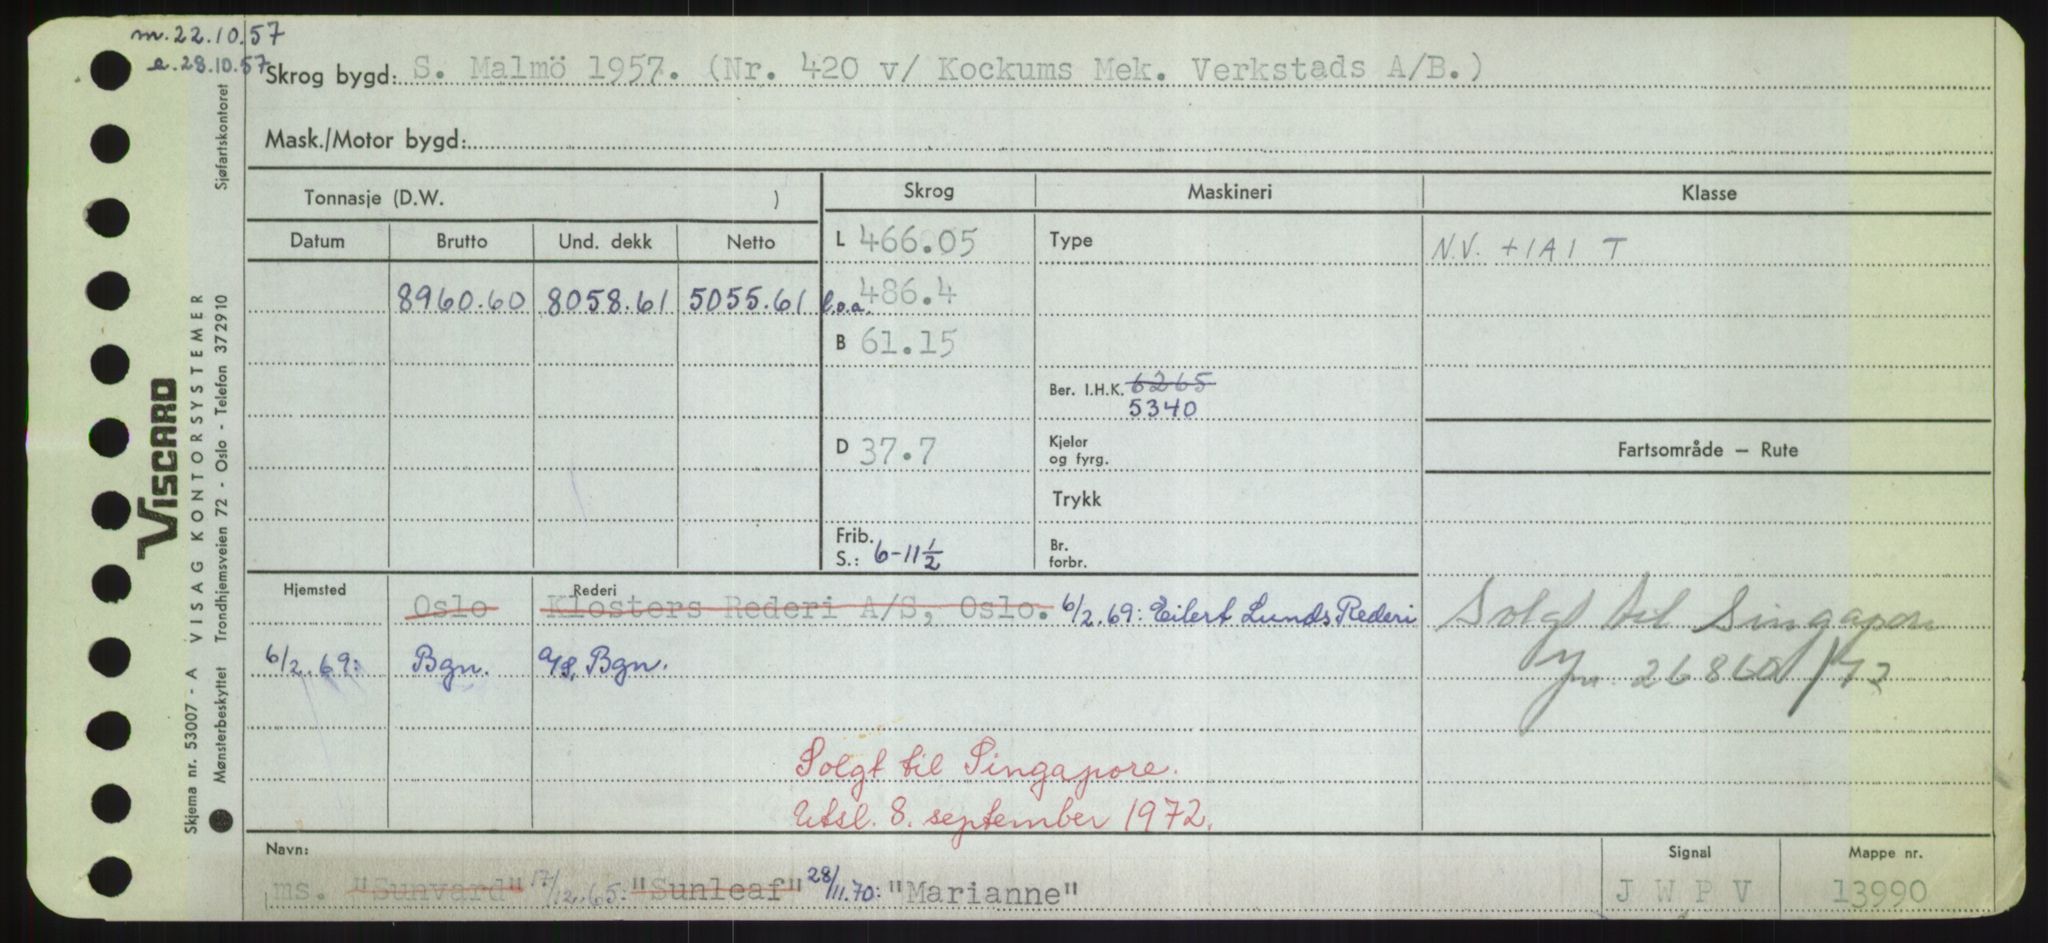 m.22.10.57
e.28.10.57
Skrog bygd: S. Malmö 1957. (Nr. 420 v/ Kockums Mek. Verkstads A/B.)
Mask./Motor bygd:
Tonnasje (D.W. )
Skrog
Maskineri
Klasse
Datum Brutto Und. dekk Netto
L 466.05
Type
N.V. +1A1 T
8960.60 8058.61 5055.61
l.o.a. 486.4
B 61.15
Ber. I.H.K. 6265
5340
Fartsområde — Rute
D 37.7
Kjeler
og fyrg.
Trykk
Frib.
S.: 6-11 1/2
Br.
forbr.
Hjemsted
Rederi
Oslo Klosters Rederi A/S, Oslo. 6/2.69: Eilert Lunds Rederi
6/2.69: Bgn. A/S, Bgn.
Solgt til Singapore
26860/72
Solgt til Singapore.
Utsl. 8. september 1972.
Navn:
Signal
Mappe nr.
ms. "Sunvard" 17/12.65: "Sunleaf" 28/11.70: "Marianne"
J W P V
13990
VISCARD
Skjema nr. 53007 - A VISAG KONTORSYSTEMER
Mønsterbeskyttet Trondhjemsveien 72 - Oslo - Telefon 372910 Sjøfartskontoret